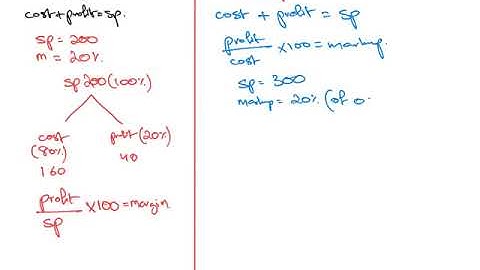 cost + profit = sp.
sp = 200
m = 20%
sp 200 (100%)
cost
(80%)
160
profit (20%)
40
profit
sp
×100 = margin
cost + profit = sp
profit
cost
×100 = markup
sp = 300
markup = 20% (of o